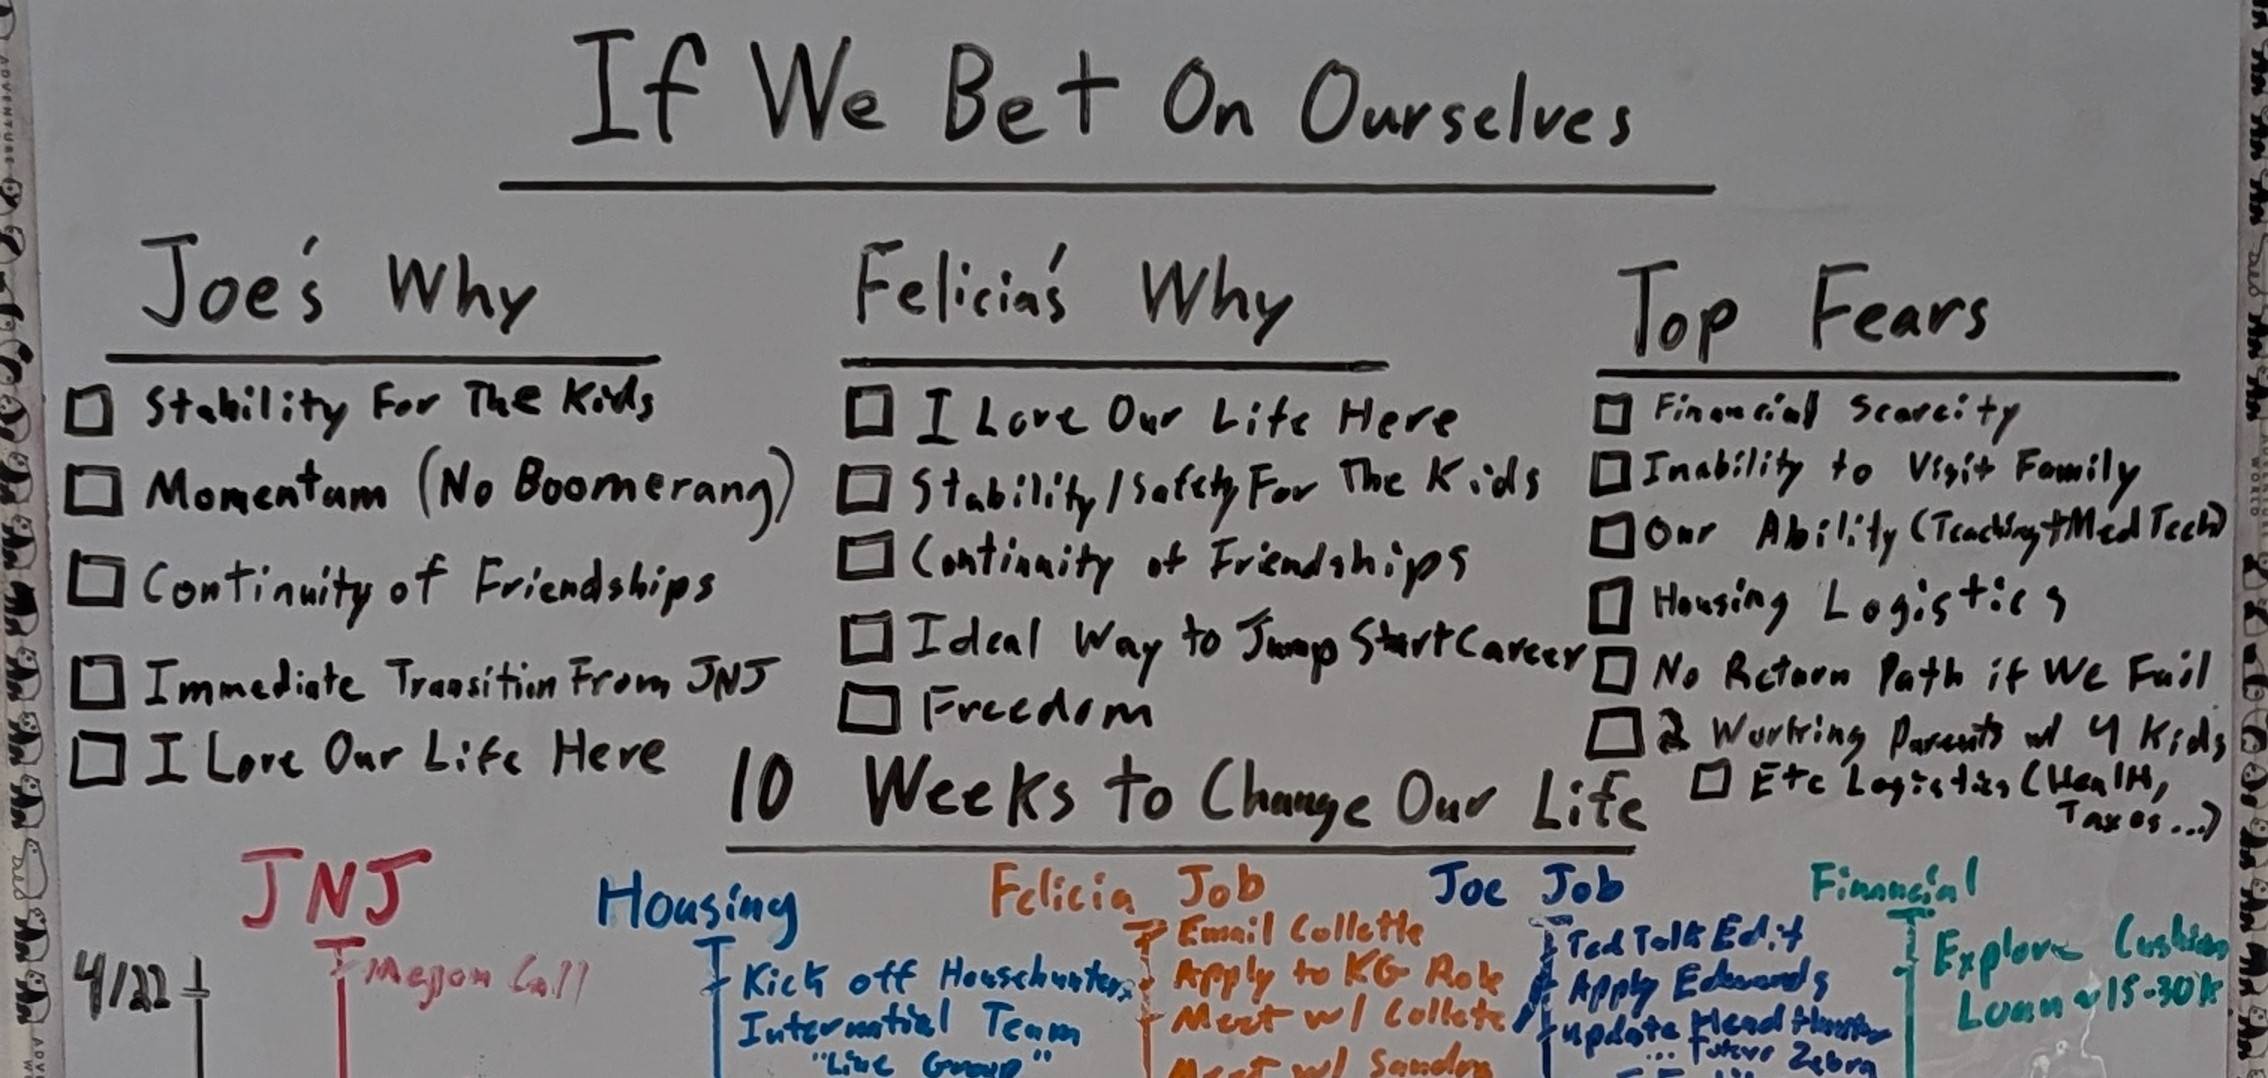 If We Bet On Ourselves
Joe's Why
Stability For The Kids
Momentum (No Boomerang)
Continuity of Friendships
Immediate Transition From JNJ
I Love Our Life Here
Felicia's Why
I Love Our Life Here
Stability/Safety For The Kids
Continuity of Friendships
Ideal Way to Jump Start Career
Freedom
Top Fears
Financial Scarcity
Inability to Visit Family
Our Ability (Teaching + MedTech)
Housing Logistics
No Return Path if We Fail
2 Working Parents w/ 4 Kids
Etc Logistics (Health,
Taxes...)
10 Weeks to Change Our Life
JNJ
4/22
Call
Housing
Kick off Househunters
Internatial Team
"Line Group"
Felicia Job
Email Collette
Apply to KG Role
Meet w/ Collete
Meet w/ Sandra
Joe Job
Ted Talk Edit
Apply Edwards
update Head Hunter
... Future Zebra
Financial
Explore Cushion
Loan ~15-30K